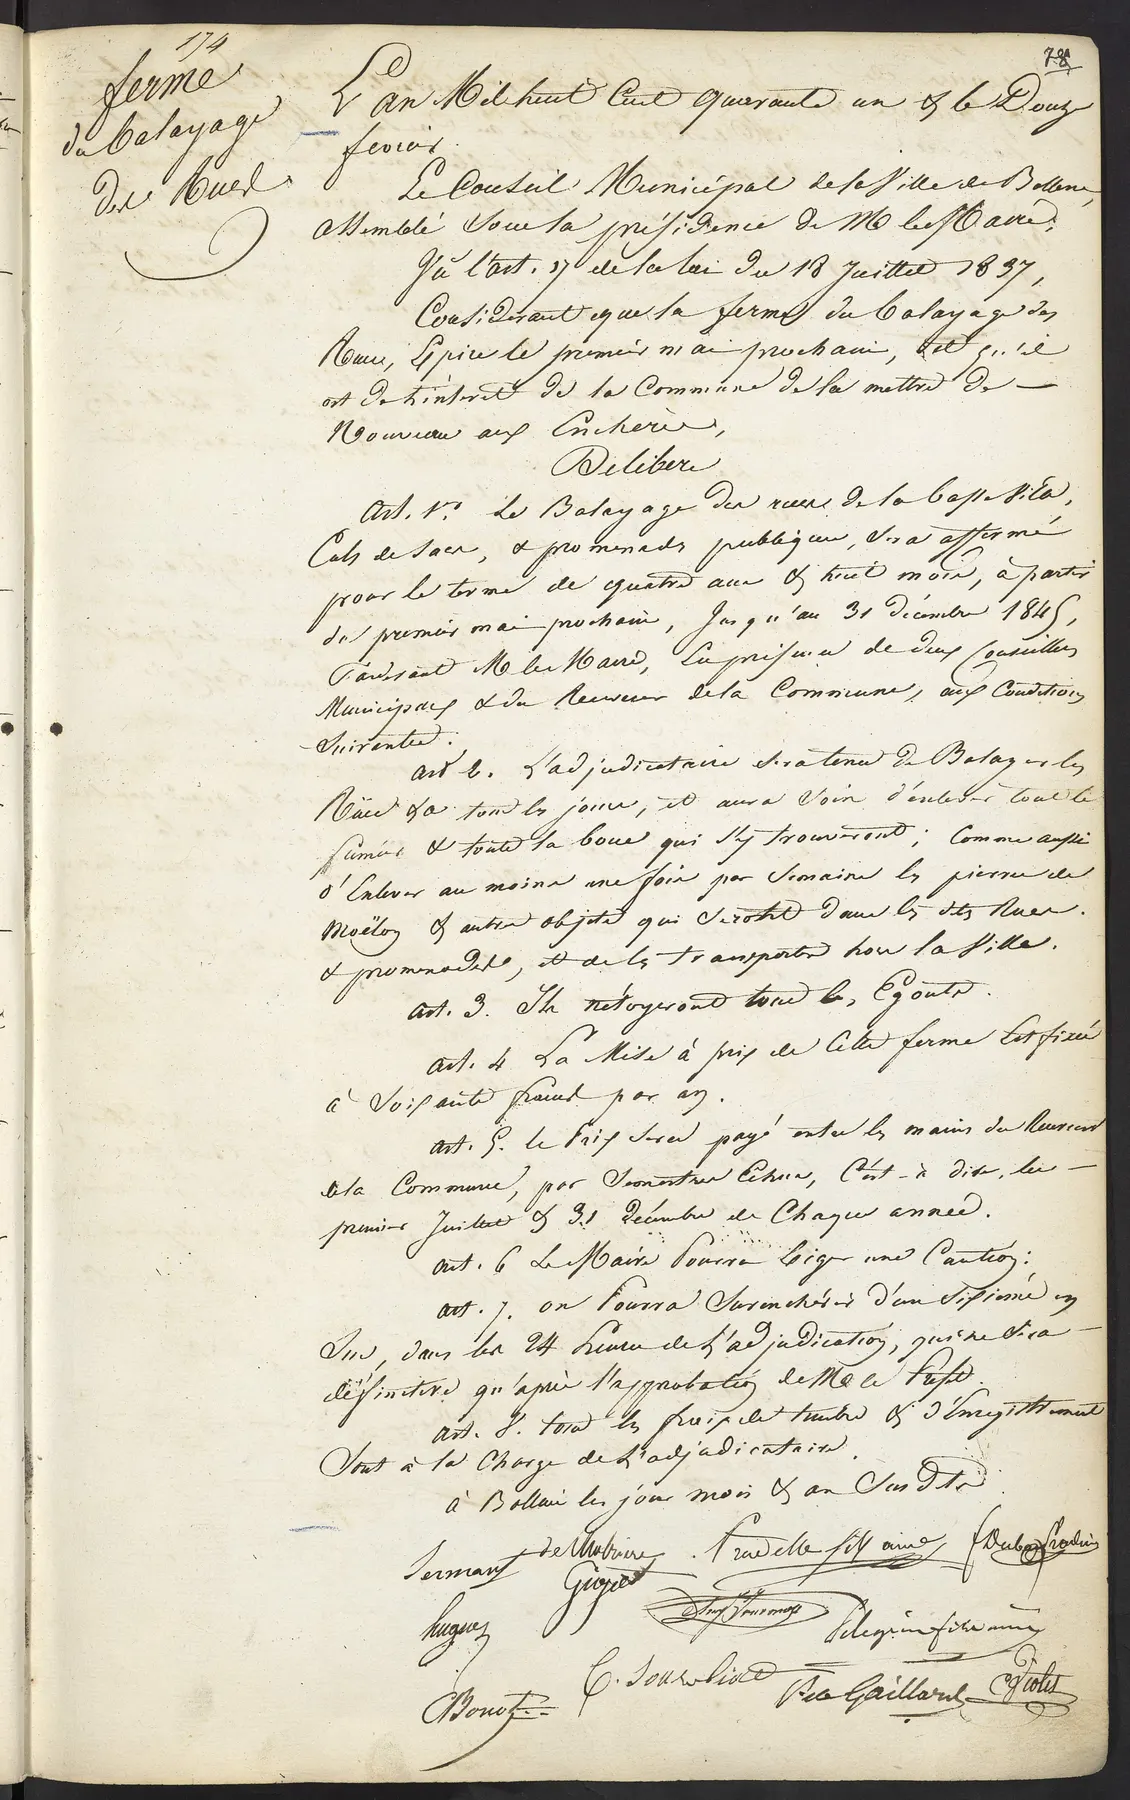 174
78
ferme
du balayage
des Rues
L'an Mil huit Cent quarante un & le Douze
fevrier.
Le Conseil Municipal de la Ville de Bollene,
assemblé sous la présidence de M le Maire;
Vû l'art. 17 de la loi du 18 Juillet 1837,
Considerant que la ferme du balayage des
Rues, Expire le premier mai prochain, et qu'il
est de l'intéret de la Commune de la mettre de —
Nouveau aux Encheres,
Delibere
Art. 1er. Le Balayage des rues de la basse Ville,
& promenades publiques, sera affermé
pour le terme de quatre ans & huit mois, à partir
du premier mai prochain, Jusqu'au 31 décembre 1845,
Pardevant M le Maire, En présence de deux Conseillers
Municipaux & du Receveur de la Commune, aux Conditions
suivantes.
art 2. L'adjudicataire sera tenu de Balayer les
Rües tous les jours, et aura soin d'enlever tout le
fumier & toute la boue qui s'y trouveront; Comme aussi
d'Enlever au moins une fois par Semaine les pierres de
moëlon & autres objets qui seront dans les dtes Rues.
& promenades, et de les transporter hors la Ville.
art. 3. Ils nétoyeront tous les Egouts.
art. 4 La Mise à prix de Cette ferme Est fixée
à Soixante francs par an.
art. 5. le Prix sera payé entre les mains du Receveur
de la Commune, par Semestres Echus, C'est-à dire, les —
premier Juillet & 31 Décembre de Chaque année.
art. 6 Le Maire Pourra Exiger une Caution;
art. 7. on Pourra Surenchérir d'un Sixième en
Sus, dans les 24 heures de L'adjudication, qui ne sera —
déffinitive qu'après l'approbation de Mr le Préfet.
art. 8. tous les frais de timbre & d'Enregistrement
Sont à la Charge de L'adjudicataire.
à Bollène les jour mois & an Sus Dits
Sermant
Pradelle fils ainé
hugues
Pelegrin fils ainé
Bonot
F de Gaillard
Violes